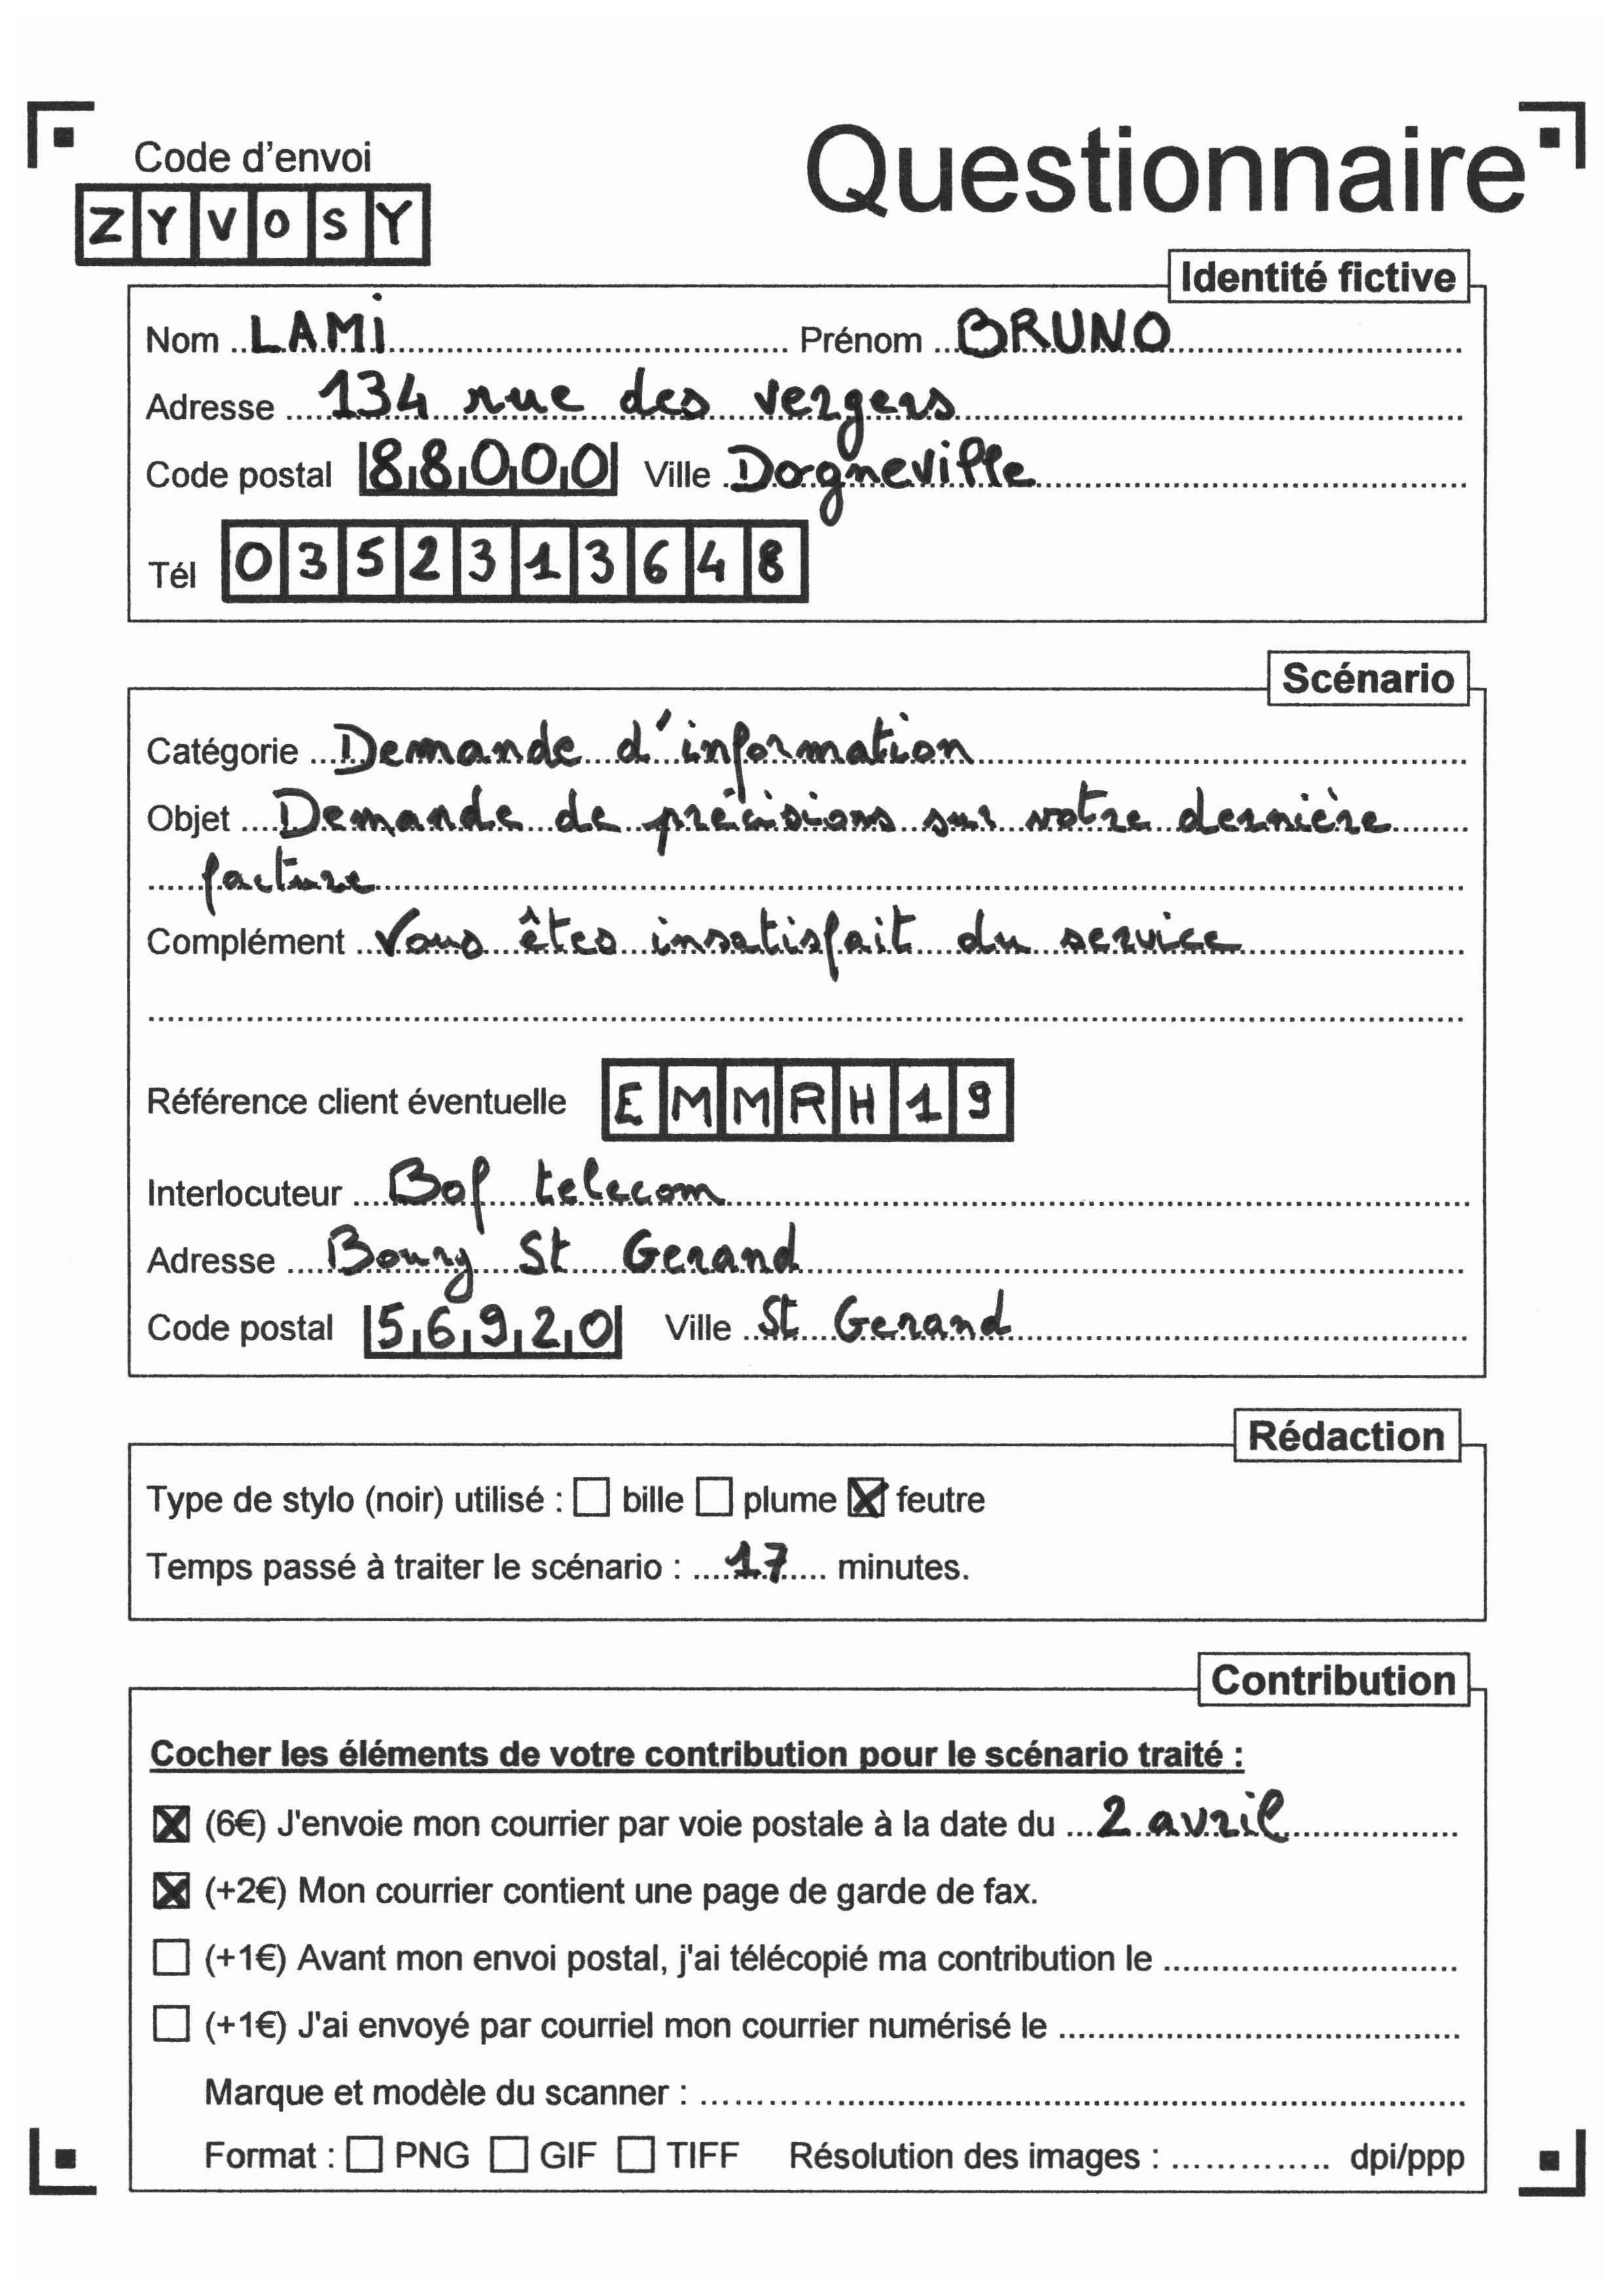 Code d'envoi
Questionnaire
ZYVOSY
Identité fictive
Nom LAMI Prénom BRUNO
Adresse 134 rue des vergers
Code postal 88000 Ville Dogneville
Tél 0352313648
Scénario
Catégorie Demande d'information
Objet Demande de précisions sur votre dernière
facture
Complément Vous êtes insatisfait du service
Référence client éventuelle EMMRH19
Interlocuteur Bof telecom
Adresse Bourg St Gerand
Code postal 56920 Ville St Gerand
Rédaction
Type de stylo (noir) utilisé : ☐ bille ☐ plume ☒ feutre
Temps passé à traiter le scénario : 17 minutes.
Contribution
Cocher les éléments de votre contribution pour le scénario traité :
☒ (6€) J'envoie mon courrier par voie postale à la date du 2 avril
☒ (+2€) Mon courrier contient une page de garde de fax.
☐ (+1€) Avant mon envoi postal, j'ai télécopié ma contribution le
☐ (+1€) J'ai envoyé par courriel mon courrier numérisé le
Marque et modèle du scanner :
Format : ☐ PNG ☐ GIF ☐ TIFF Résolution des images : dpi/ppp